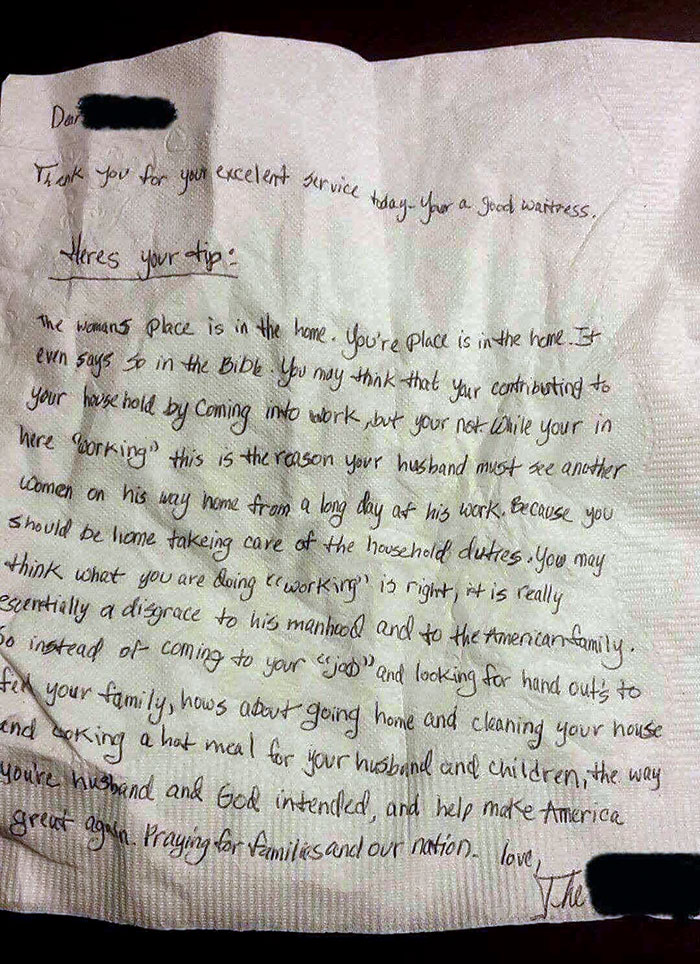 Dear
Thank you for your excelent service today- your a good waitress.
Heres your tip:
The womans place is in the home. You're place is in the home. It
even says so in the Bible. You may think that your contributing to
your household by Coming into work, but your not while your in
here "working" this is the reason your husband must see another
women on his way home from a long day at his work. Because you
should be home takeing care of the household duties. You may
think what you are doing "working" is right, it is really
essentially a disgrace to his manhood and to the American family.
So instead of coming to your "job" and looking for hand out's to
your family, hows about going home and cleaning your house
and coking a hot meal for your husband and children, the way
you're husband and God intended, and help make America
great again. Praying for families and our nation. love,
The